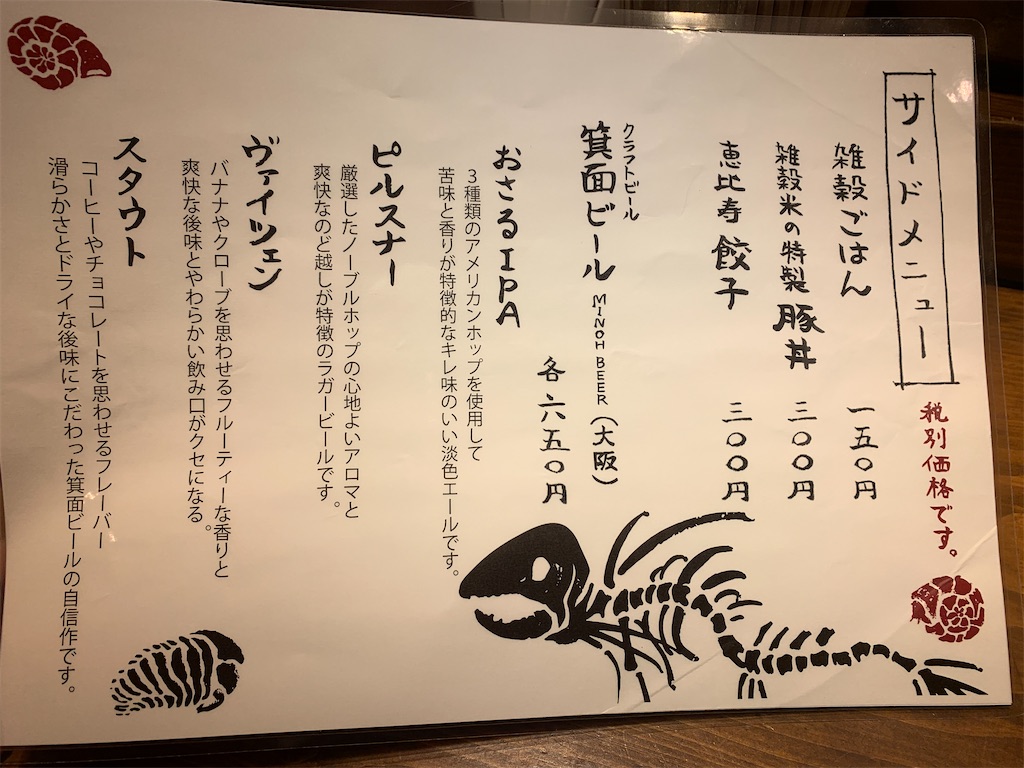 サイドメニュー
税別価格です。
雑穀ごはん 一五〇円
雑穀米の特製 豚丼 三〇〇円
恵比寿 餃子 三〇〇円
クラフトビール
箕面ビール MINOH BEER (大阪)
各 六五〇円
おさるIPA
3種類のアメリカンホップを使用して
苦味と香りが特徴的なキレ味のいい淡色エールです。
ピルスナー
厳選したノーブルホップの心地よいアロマと
爽快なのど越しが特徴のラガービールです。
ヴァイツェン
バナナやクローブを思わせるフルーティーな香りと
爽快な後味とやわらかい飲み口がクセになる。
スタウト
コーヒーやチョコレートを思わせるフレーバー
滑らかさとドライな後味にこだわった箕面ビールの自信作です。